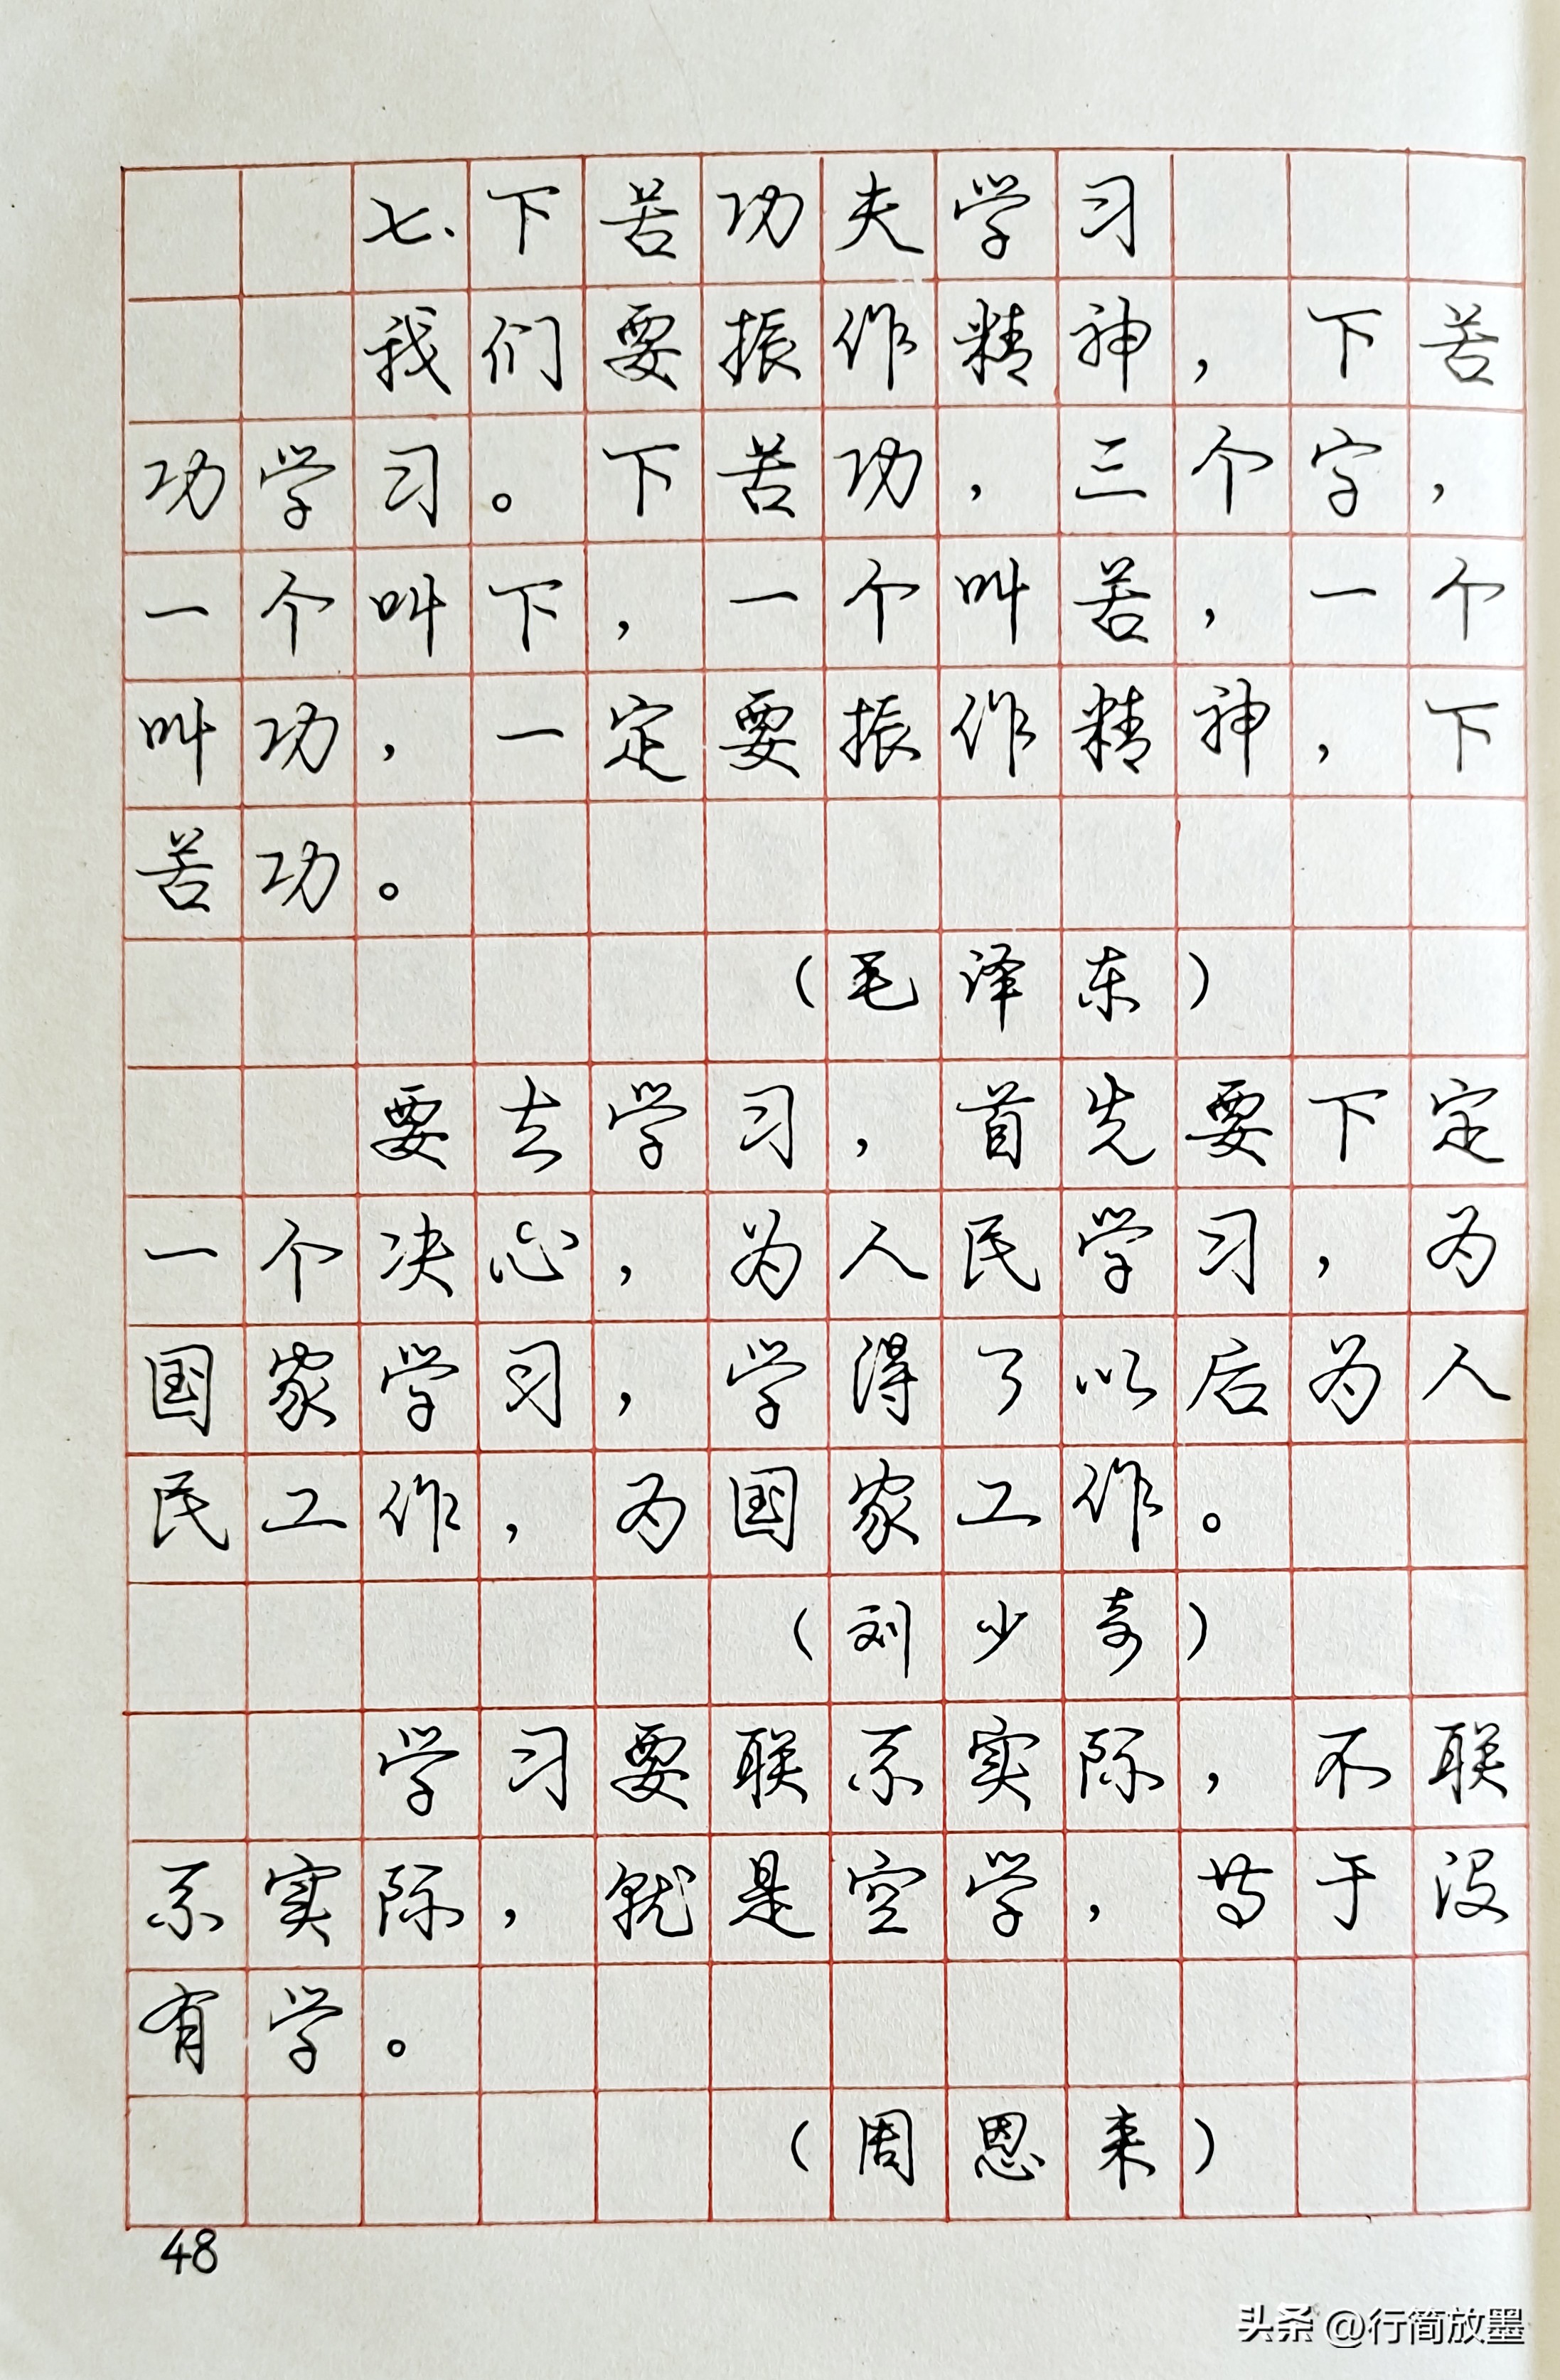 七、下苦功夫学习
我们要振作精神，下苦
功学习。下苦功，三个字，
一个叫下，一个叫苦，一个
叫功，一定要振作精神，下
苦功。
（毛泽东）
要去学习，首先要下定
一个决心，为人民学习，为
国家学习，学得了以后为人
民工作，为国家工作。
（刘少奇）
学习要联系实际，不联
系实际，就是空学，等于没
有学。
（周恩来）
48
头条@行简放墨